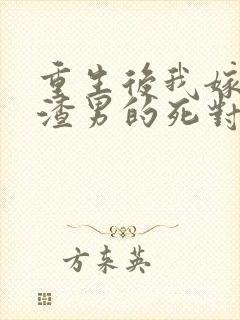 重生後我嫁
渣男的死對
方束英